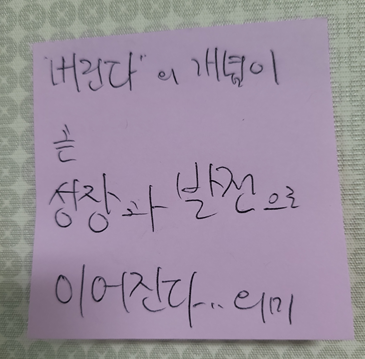 "버린다" 의 개념이
곧
성장과 발전으로
이어진다... 의미